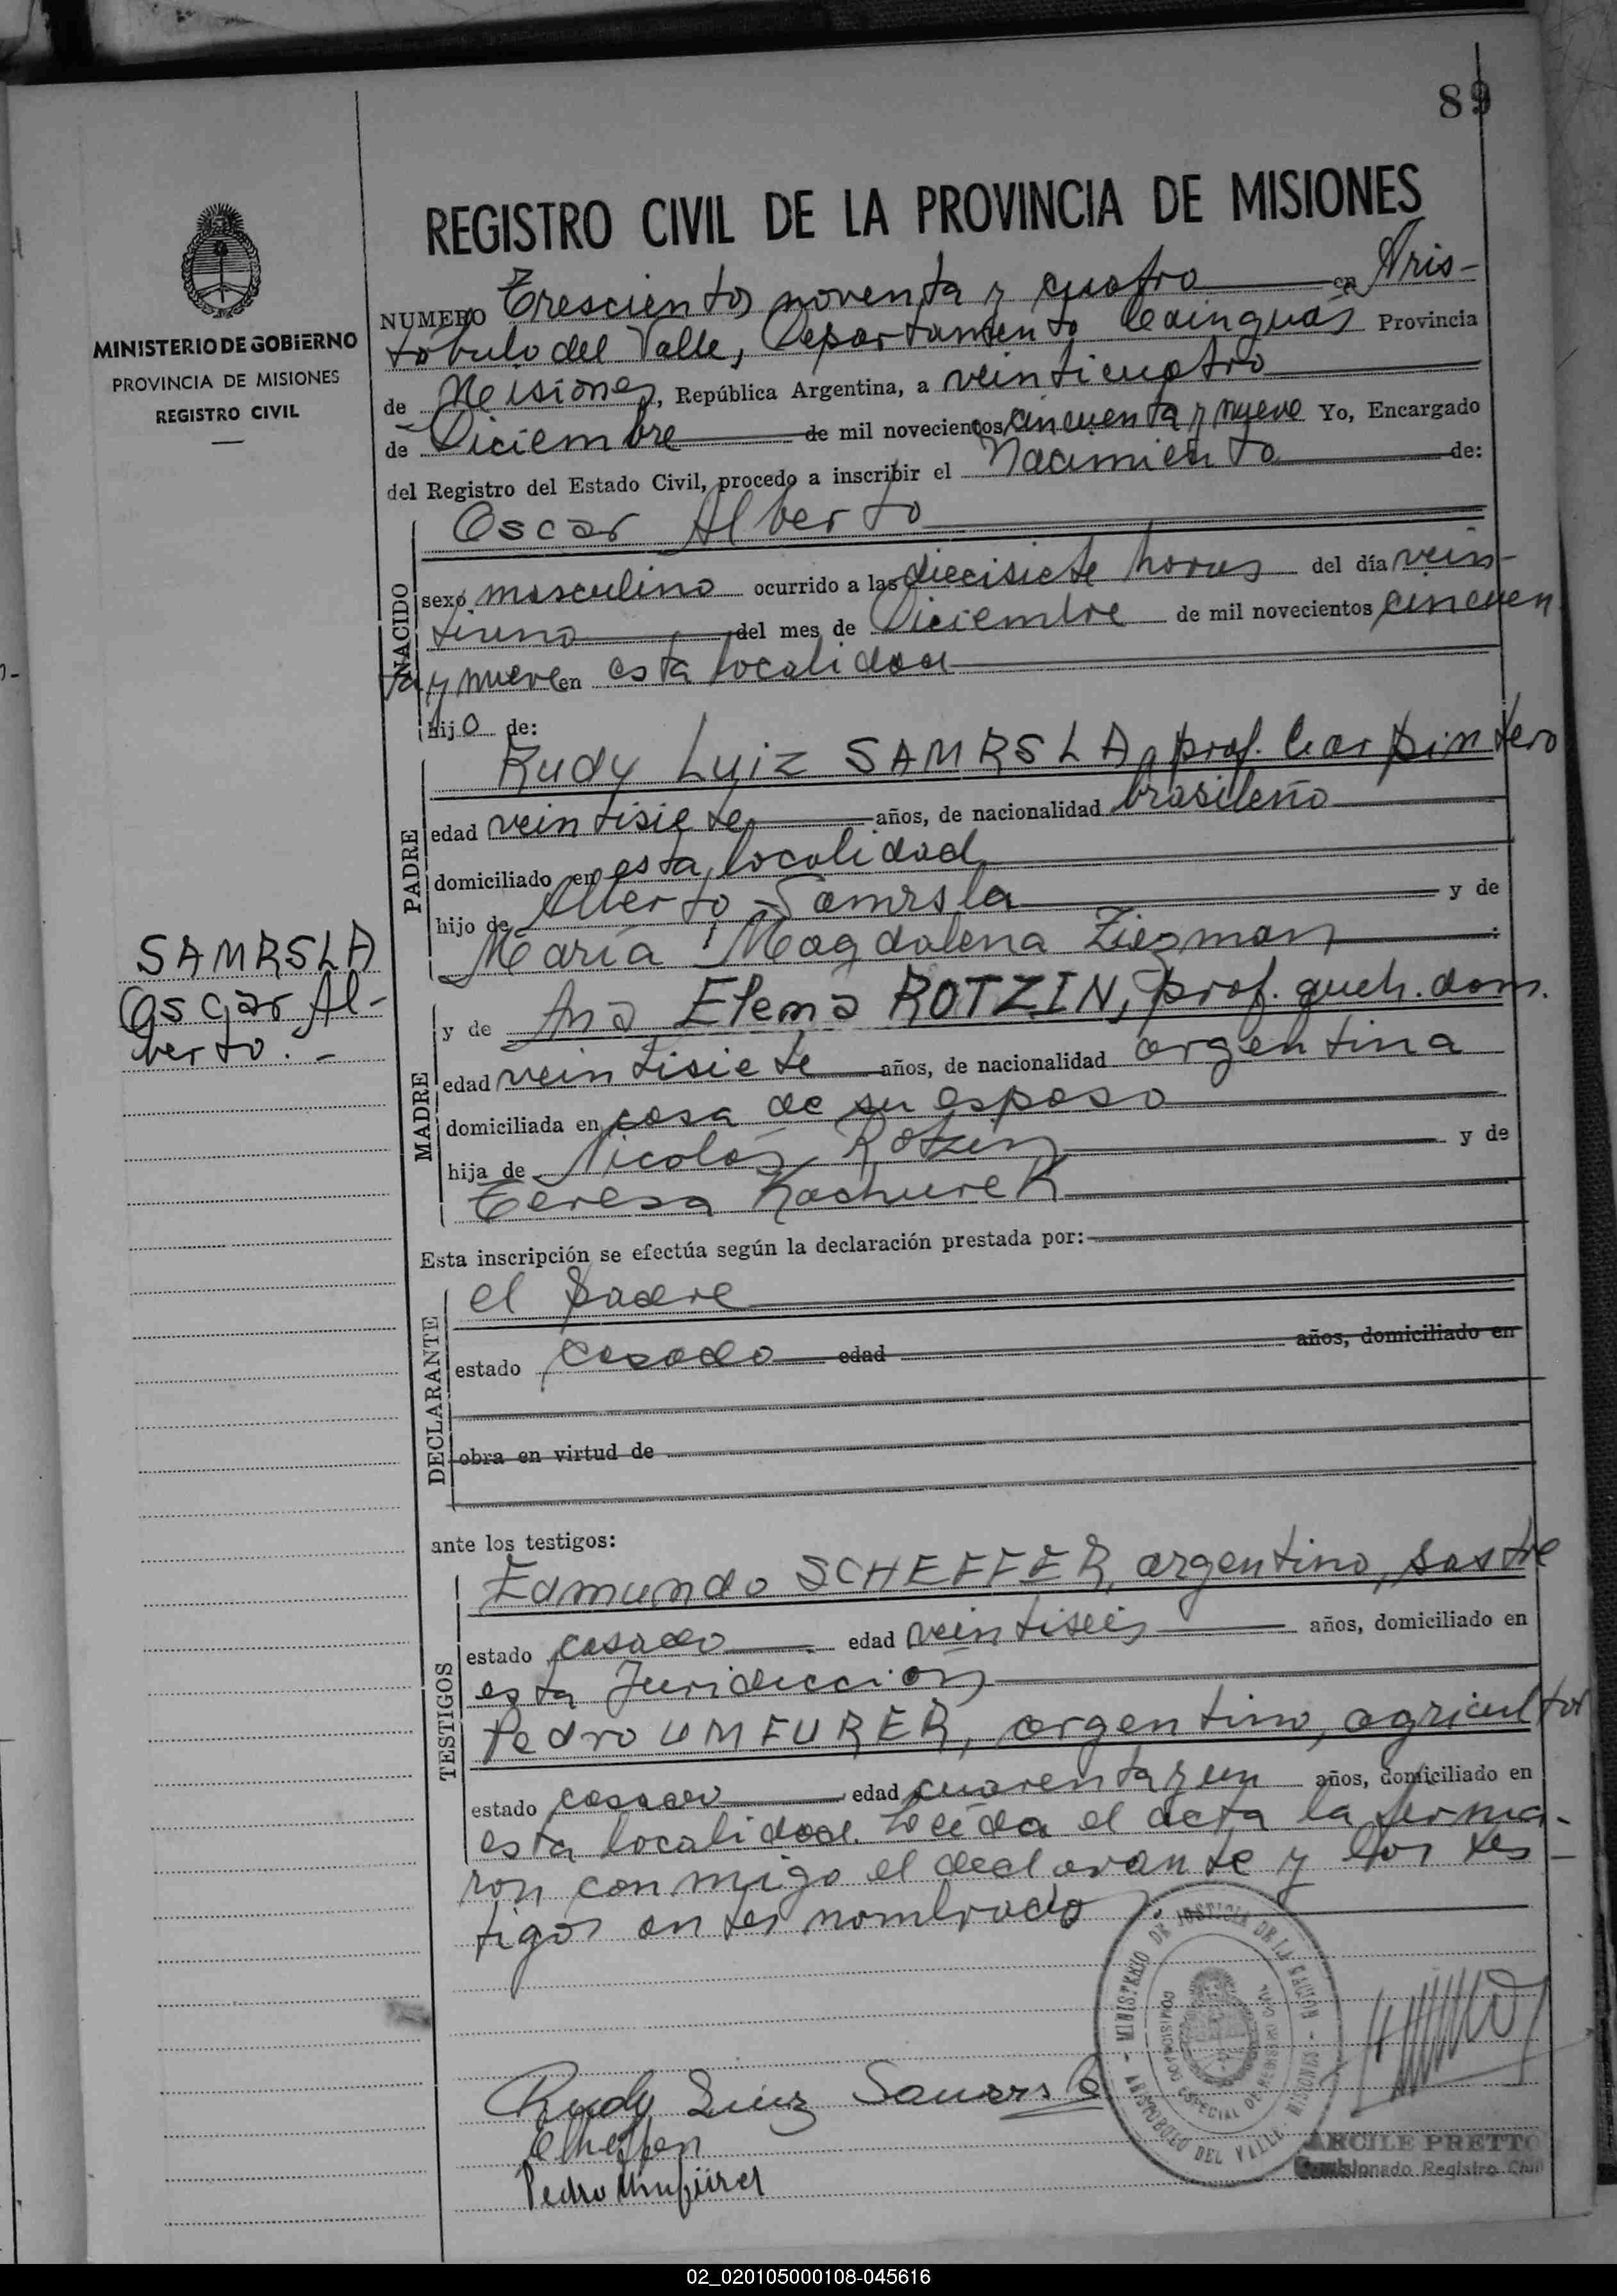 89
MINISTERIO DE GOBIERNO
PROVINCIA DE MISIONES
REGISTRO CIVIL
REGISTRO CIVIL DE LA PROVINCIA DE MISIONES
NUMERO Trescientos noventa y cuatro en Aris-
tóbulo del Valle, Departamento Cainguás Provincia
de Misiones, República Argentina, a veinticuatro
de Diciembre de mil novecientos cincuenta y nueve Yo, Encargado
del Registro del Estado Civil, procedo a inscribir el Nacimiento de:
NACIDO
Oscar Alberto
sexo masculino ocurrido a las diecisiete horas del día vein-
tiuno del mes de Diciembre de mil novecientos cincuen
ta y nueve en esta localidad
hijo de:
PADRE
Rudy Luiz SAMRSLA, prof. Carpintero
edad veintisiete años, de nacionalidad brasileño
domiciliado en esta localidad
hijo de Alberto Samrsla y de
María Magdalena Ziegman :
SAMRSLA
Oscar Al-
berto. -
MADRE
y de Ana Elena ROTZIN, prof. queh. dom.
edad veintisiete años, de nacionalidad argentina
domiciliada en casa de su esposo
hija de Nicolás Rotzin y de
Teresa Kachurek
Esta inscripción se efectúa según la declaración prestada por:
DECLARANTE
el padre
estado casado edad años, domiciliado en
obra en virtud de
ante los testigos:
TESTIGOS
Edmundo SCHEFFER, argentino, sastre
estado casado edad veintiseis años, domiciliado en
esta Juridiccion
Pedro UMFURER, argentino, agricultor
estado casado edad cuarenta y un años, domiciliado en
esta localidad. Leída el acta la firma-
ron conmigo el declarante y los tes-
tigos antes nombrados.
MINISTERIO DE JUSTICIA DE LA NACION
COMISIONADO ESPECIAL DE REGISTRO CIVIL
ARISTOBULO DEL VALLE - MISIONES -
Rudy Luiz Samrsla
Pedro Umfürer
ARCILE PRETTO
Comisionado Registro Civil
02_020105000108-045616